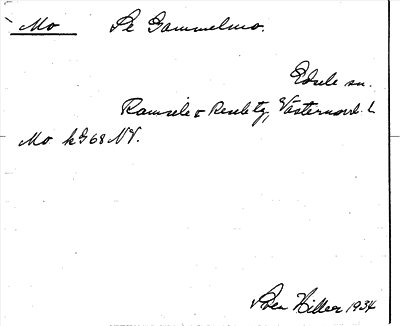 Mo Pe Gammelmo.
Edsele sn.
Ramsele o Resele tg, Västernorrl. L
Mo kG 68 NV.
Hiller 1934